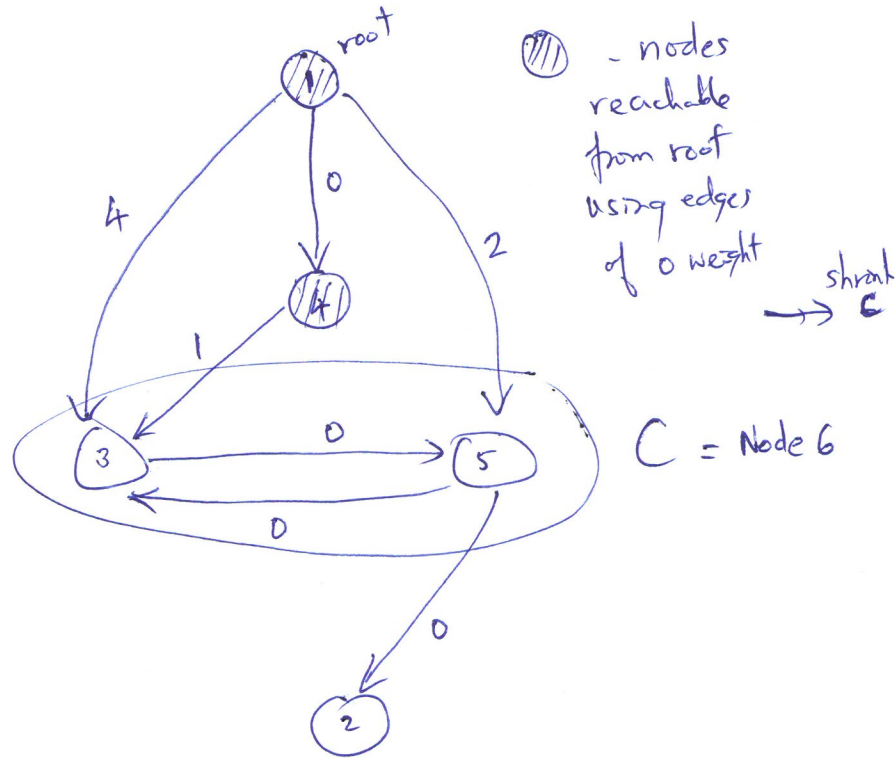 root
1
- nodes
reachable
from root
using edges
of 0 weight
shrink
C
4
0
2
4
1
C = Node 6
3
0
5
0
0
2